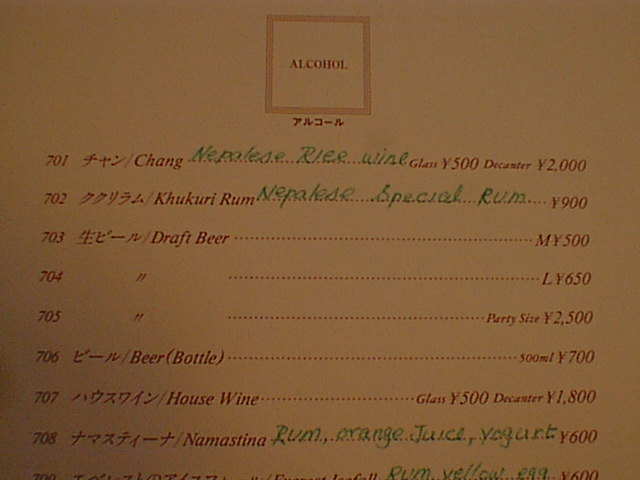 ALCOHOL
アルコール
701 チャン/Chang Nepalese Rice wine Glass ¥500 Decanter ¥2,000
702 ククリラム/Khukuri Rum Nepalese Special Rum ¥900
703 生ビール/Draft Beer M¥500
704 〃 L¥650
705 〃 Party Size ¥2,500
706 ビール/Beer(Bottle) 500ml ¥700
707 ハウスワイン/House Wine Glass ¥500 Decanter ¥1,800
708 ナマスティーナ/Namastina Rum, orange Juice, yogurt ¥600
709 Everest Icefall Rum yellow egg ¥600